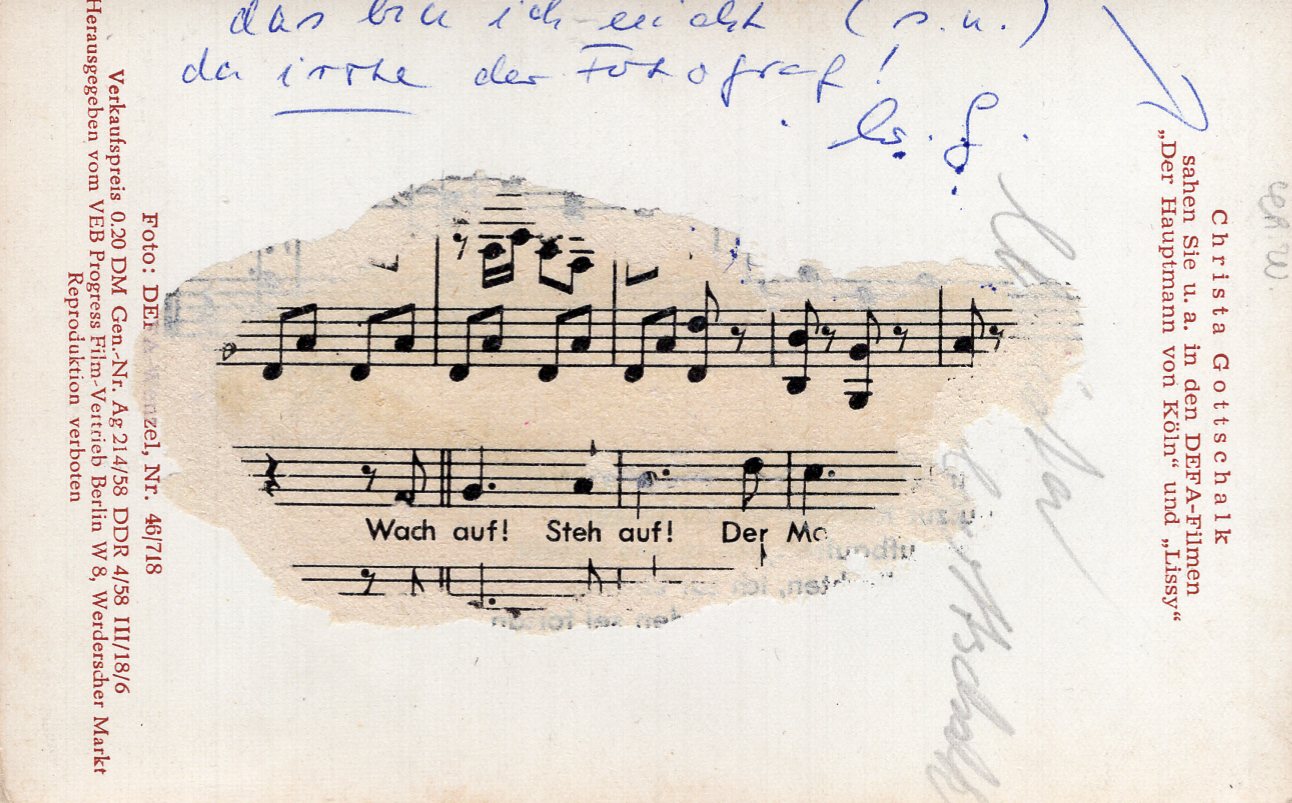 das bin ich nicht (s. u.)
da irrte der Fotograf!
Christa Gottschalk
sahen Sie u. a. in den DEFA-Filmen
„Der Hauptmann von Köln“ und „Lissy“
Wach auf! Steh auf! Der Mo
Foto: DEF Wenzel, Nr. 46/718
Verkaufspreis 0.20 DM Gen.-Nr. Ag 214/58 DDR 4/58 III/18/6
Herausgegeben vom VEB Progress Film-Vertrieb Berlin W 8, Werderscher Markt
Reproduktion verboten